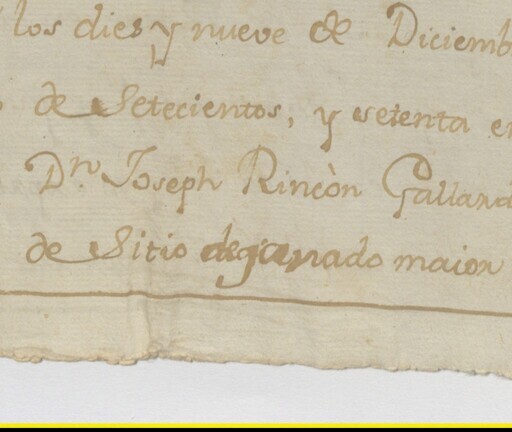 los dies y nueve de Diciemb
de Setecientos, y setenta en
Dn Joseph Rincòn Gallard
de Sitio de ganado maior